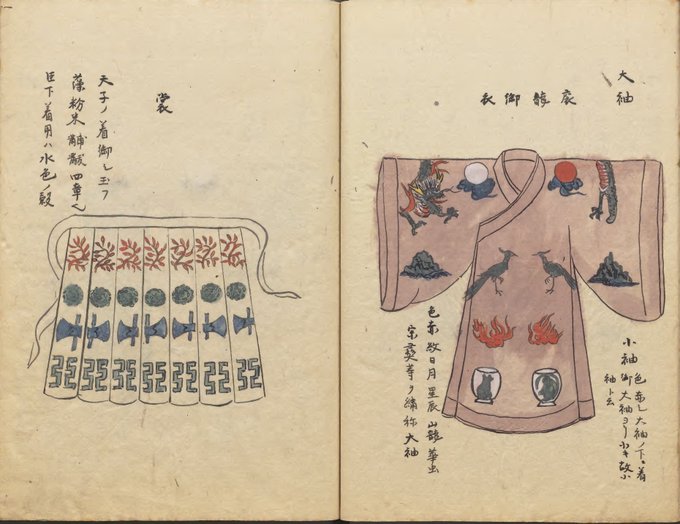 大袖
袞龍御衣
小袖 色赤シ大袖ノ下ニ着
御大袖ヨリ小キ故小
袖ト云
色赤 日月星辰山龍華虫
宗彝等ヲ繍称大袖
裳
天子ノ着御シ玉フ
藻粉米黼黻四章也
臣下着用ハ水色ノ縠